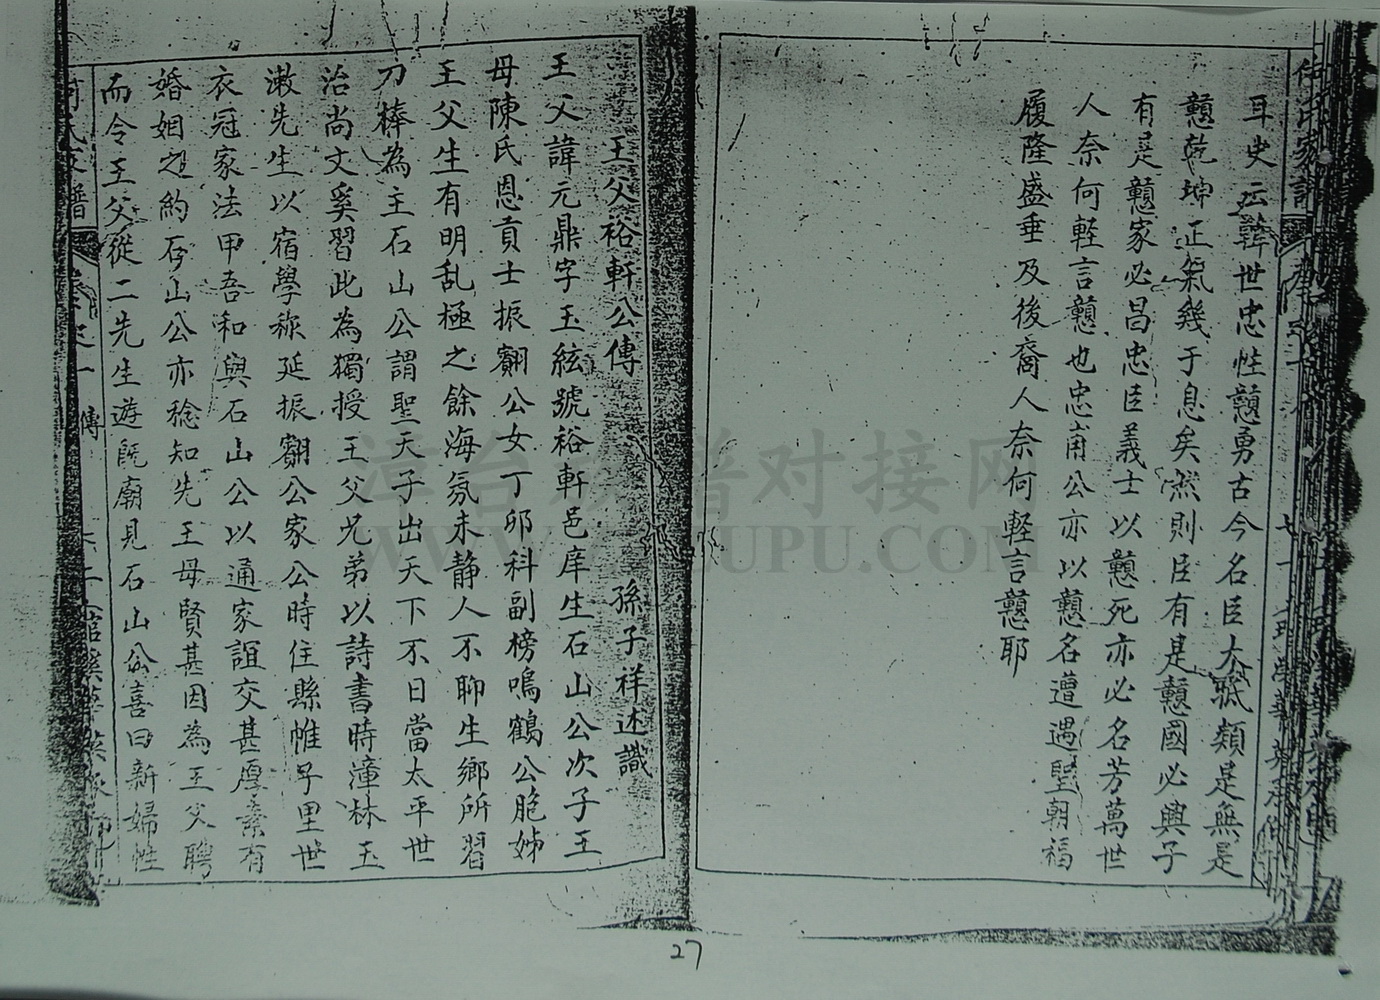 耳史云韓世忠性戇勇古今名臣大抵類是無是
戇乾坤正氣幾于息矣然則臣有是戇國必興子
有是戇家必昌忠臣義士以戇死亦必名芳萬世
人奈何軽言戇也忠甫公亦以戇名遭遇聖朝福
履隆盛垂及後裔人奈何軽言戇耶
王父裕軒公傳 孫子祥述識
王父諱元鼎字玉絃號裕軒邑庠生石山公次子王
母陳氏恩貢士振翩公女丁卯科副榜鳴鶴公胞姊
王父生有明乱極之餘海氛未静人不聊生鄉所習
刀棒為主石山公謂聖天子出天下不日當太平世
治尚文奚習此為獨授王父兄弟以詩書時漳林玉
漱先生以宿學称延振翩公家公時住縣帷子里世
衣冠家法甲吾和與石山公以通家誼交甚厚素有
婚姻之約石山公亦稔知先王母賢甚因為王父聘
而令王父從二先生遊既廟見石山公喜曰新婦性
氏家譜 卷之一 傳
漳台族谱对接网
WWW.ZTZUPU.COM
27